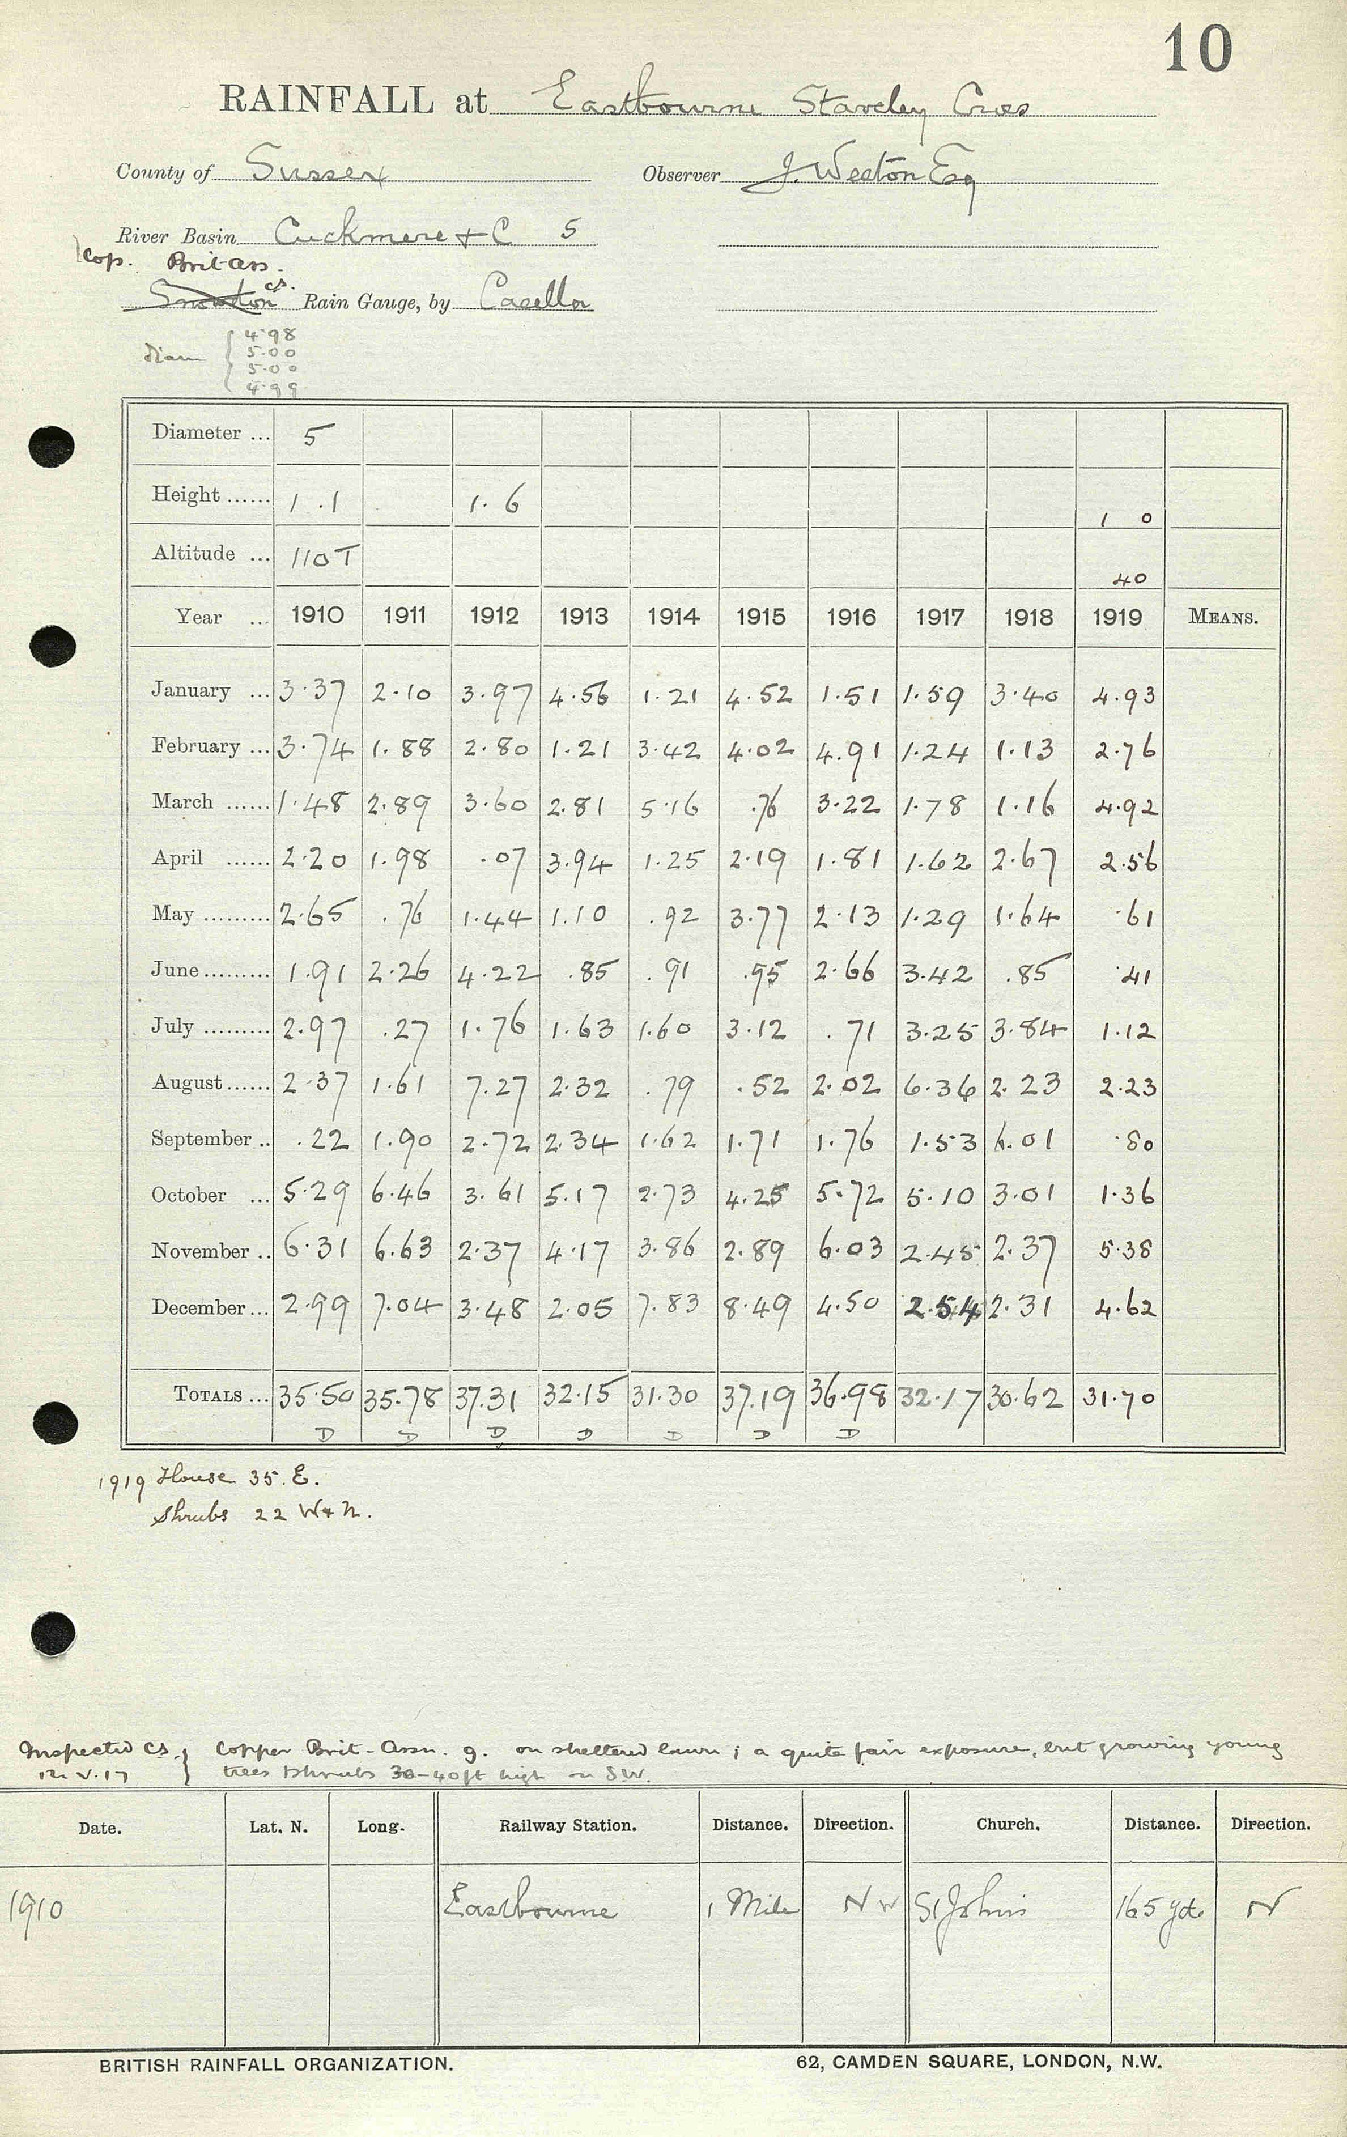 10
RAINFALL at Eastbourne Staveley Cross
County of Sussex Observer J. Weston Esq
River Basin Cuckmere & C 5
Cop. Brit Ass.
Snowdon cs. Rain Gauge, by Casella
Diam { 4.98
5.00
5.00
4.99
Diameter ... 5
Height ...... 1 .1 1. 6 1 0
Altitude ... 110 T 40
Year ... 1910 1911 1912 1913 1914 1915 1916 1917 1918 1919 MEANS.
January ... 3.37 2.10 3.97 4.56 1.21 4.52 1.51 1.59 3.40 4.93
February ... 3.74 1.88 2.80 1.21 3.42 4.02 4.91 1.24 1.13 2.76
March ...... 1.48 2.89 3.60 2.81 5.16 .76 3.22 1.78 1.16 4.92
April ...... 2.20 1.98 .07 3.94 1.25 2.19 1.81 1.62 2.67 2.56
May ......... 2.65 .76 1.44 1.10 .92 3.77 2.13 1.29 1.64 .61
June ......... 1.91 2.26 4.22 .85 .91 .95 2.66 3.42 .85 .41
July ......... 2.97 .27 1.76 1.63 1.60 3.12 .71 3.25 3.84 1.12
August ...... 2.37 1.61 7.27 2.32 .79 .52 2.02 6.36 2.23 2.23
September .. .22 1.90 2.72 2.34 1.62 1.71 1.76 1.53 6.01 .80
October ... 5.29 6.46 3.61 5.17 2.73 4.25 5.72 5.10 3.01 1.36
November .. 6.31 6.63 2.37 4.17 3.86 2.89 6.03 2.45 2.37 5.38
December ... 2.99 7.04 3.48 2.05 7.83 8.49 4.50 2.54 2.31 4.62
TOTALS ... 35.50 35.78 37.31 32.15 31.30 37.19 36.98 32.17 30.62 31.70
D D D D D D D
1919 House 35. E.
Shrubs 22 W & N.
Inspected CS. } Copper Brit-Assn. g. on sheltered lawn ; a quite fair exposure, but growing young
V.17 } trees & shrubs 30-40 ft high on SW.
Date. Lat. N. Long. Railway Station. Distance. Direction. Church. Distance. Direction.
1910 Eastbourne 1 Mile NW St Johns 165 yds N
BRITISH RAINFALL ORGANIZATION. 62, CAMDEN SQUARE, LONDON, N.W.